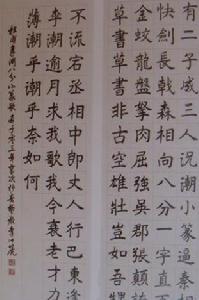 有二子成三人況潮小篆逼秦相
快劍長戟森相向八分一字直百
金蛟龍盤拏肉屈強吳郡張顛誇
草書草書非古空雄壯豈如吾甥
不流宕丞相中郎丈人行巴東逢
李潮逾月求我歌我今衰老才力
薄潮乎潮乎奈如何
杜甫李潮八分小篆歌